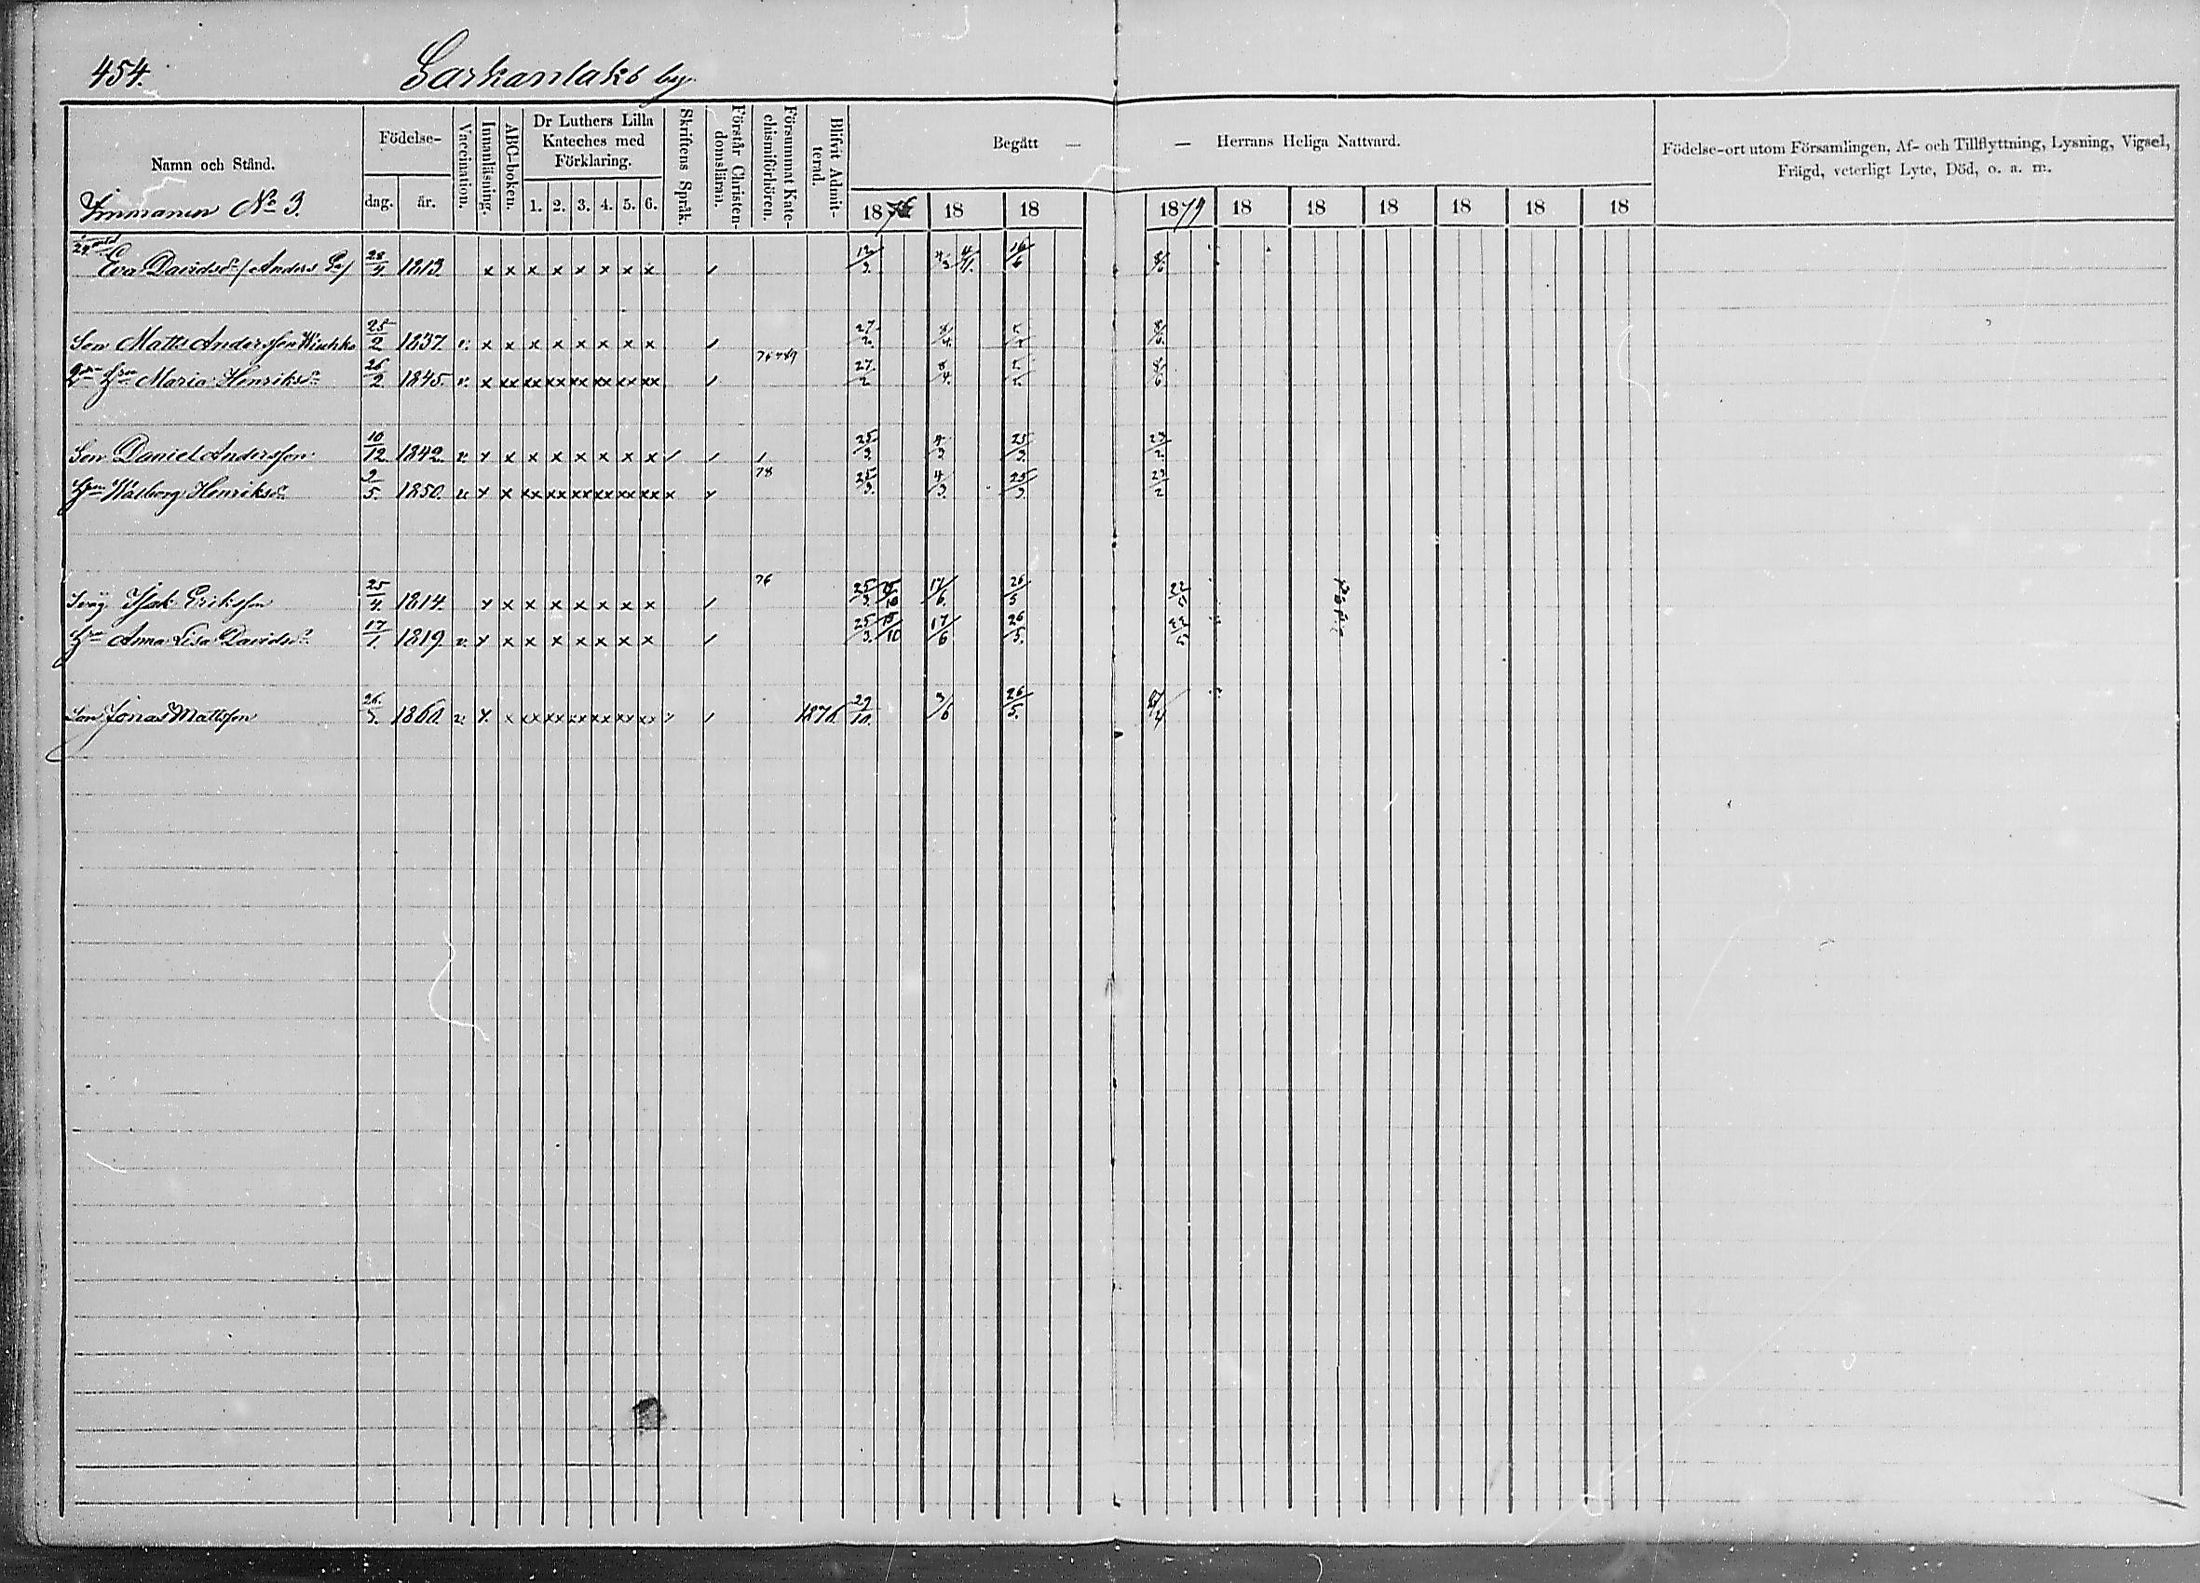 454. Sarkanlaks by.
Namn och Stånd. Födelse- dag. år. Vaccination. Innanläsning. ABC-boken. Dr Luthers Lilla Kateches med Förklaring. 1. 2. 3. 4. 5. 6. Skriftens Språk. Förstår Christendomsläran. Försummat Katechismiförhören. Blifvit Admitterad. Begått — — Herrans Heliga Nattvard. Födelse-ort utom Församlingen, Af- och Tillflyttning, Lysning, Vigsel, Frägd, veterligt Lyte, Död, o. a. m.
Immanen No 3. 18 18 18 1879 18 18 18 18 18 18
Eva Davidsdr /Anders 28/4 1813. x x x x x x x x / 12/3. 4/11. 16/6
Son Matts Andersson 25/2 1837. v. x x x x x x x x / 27/2.
Hru Maria Henriksdr 26/2 1845. v. x xx xx xx xx xx xx xx / 27/2 8/4.
Son Daniel Andersson 10/12. 1842. v. x x x x x x x x / / / 25/3. 4/3 25/3. 23/2.
Hru Walborg Henriksdr 9/5. 1850. v. x x xx xx xx xx xx xx x x 78 25/3. 4/3. 25/3. 23/2
Isak Eriksson 25/4. 1814. x x x x x x x x / 76 25/3. 15/10 17/6. 26/5 22/5
Hru Anna Lisa Davidsdr 17/1. 1819. v. x x x x x x x x / 25/3. 15/10 17/6 26/5. 22/5
Son Jonas Mattsson 26/5. 1860. v. x. x xx xx xx xx xx xx / 1876. 29/10. 3/6 26/5.